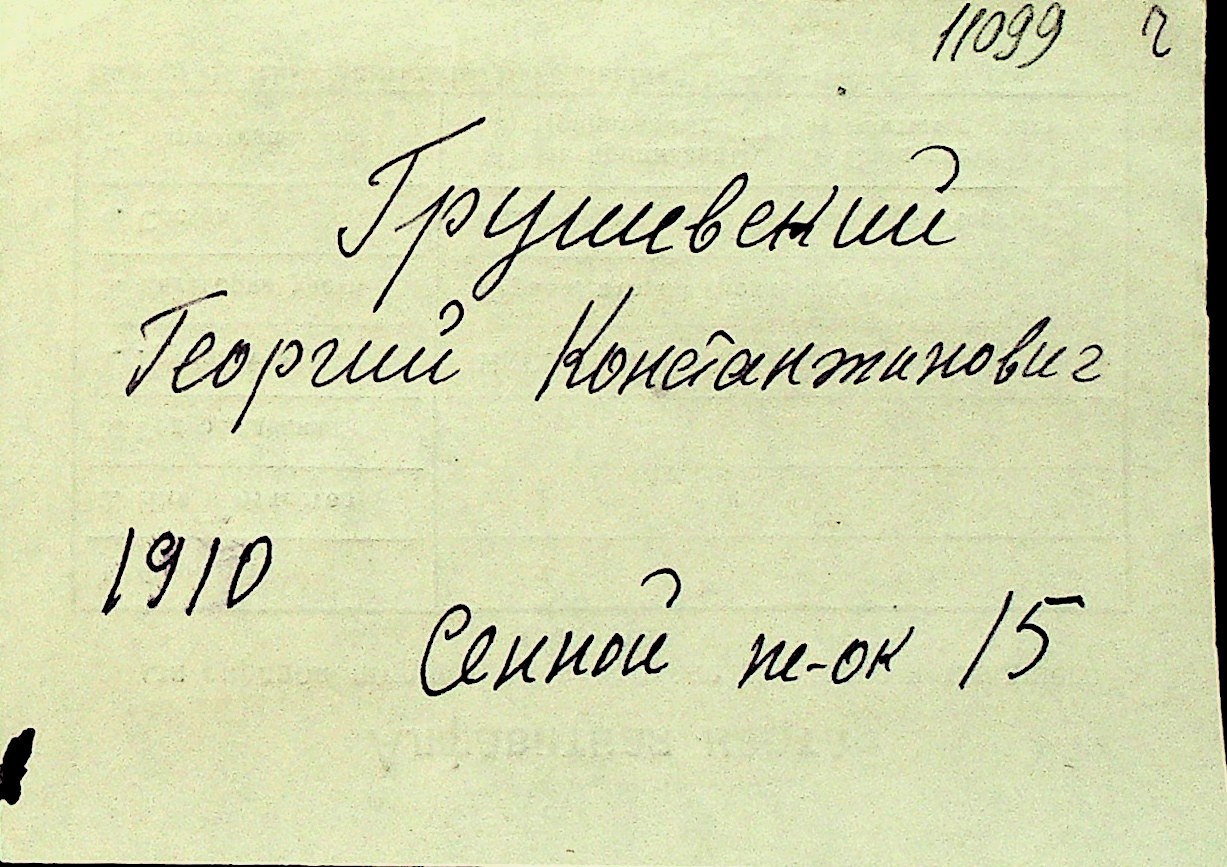 11099 ч
Грушевский
Георгий Константинович
1910
Сенной т-ок 15